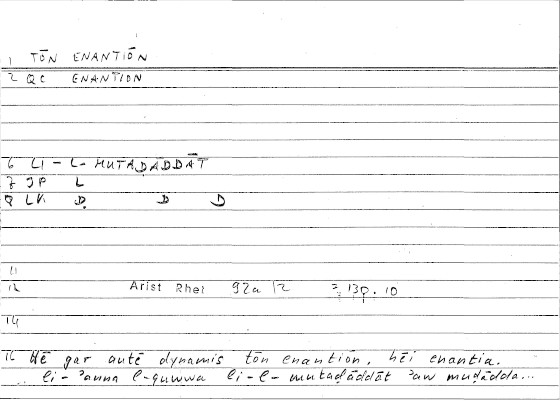 1 TŌN ENANTIŌN
2 QC ENANTION
6 LI-L-MUTAḌĀDDĀT
7 JP L
8 LK Ḍ D D
11
12 Arist Rhet 92a 12 = 13p. 10
14
16 Hē gar autē dynamis tōn enantiōn, hēi enantia.
.. li-ʾanna l-quwwa li-l-mutaḍāddāt ʾaw muḍādda...